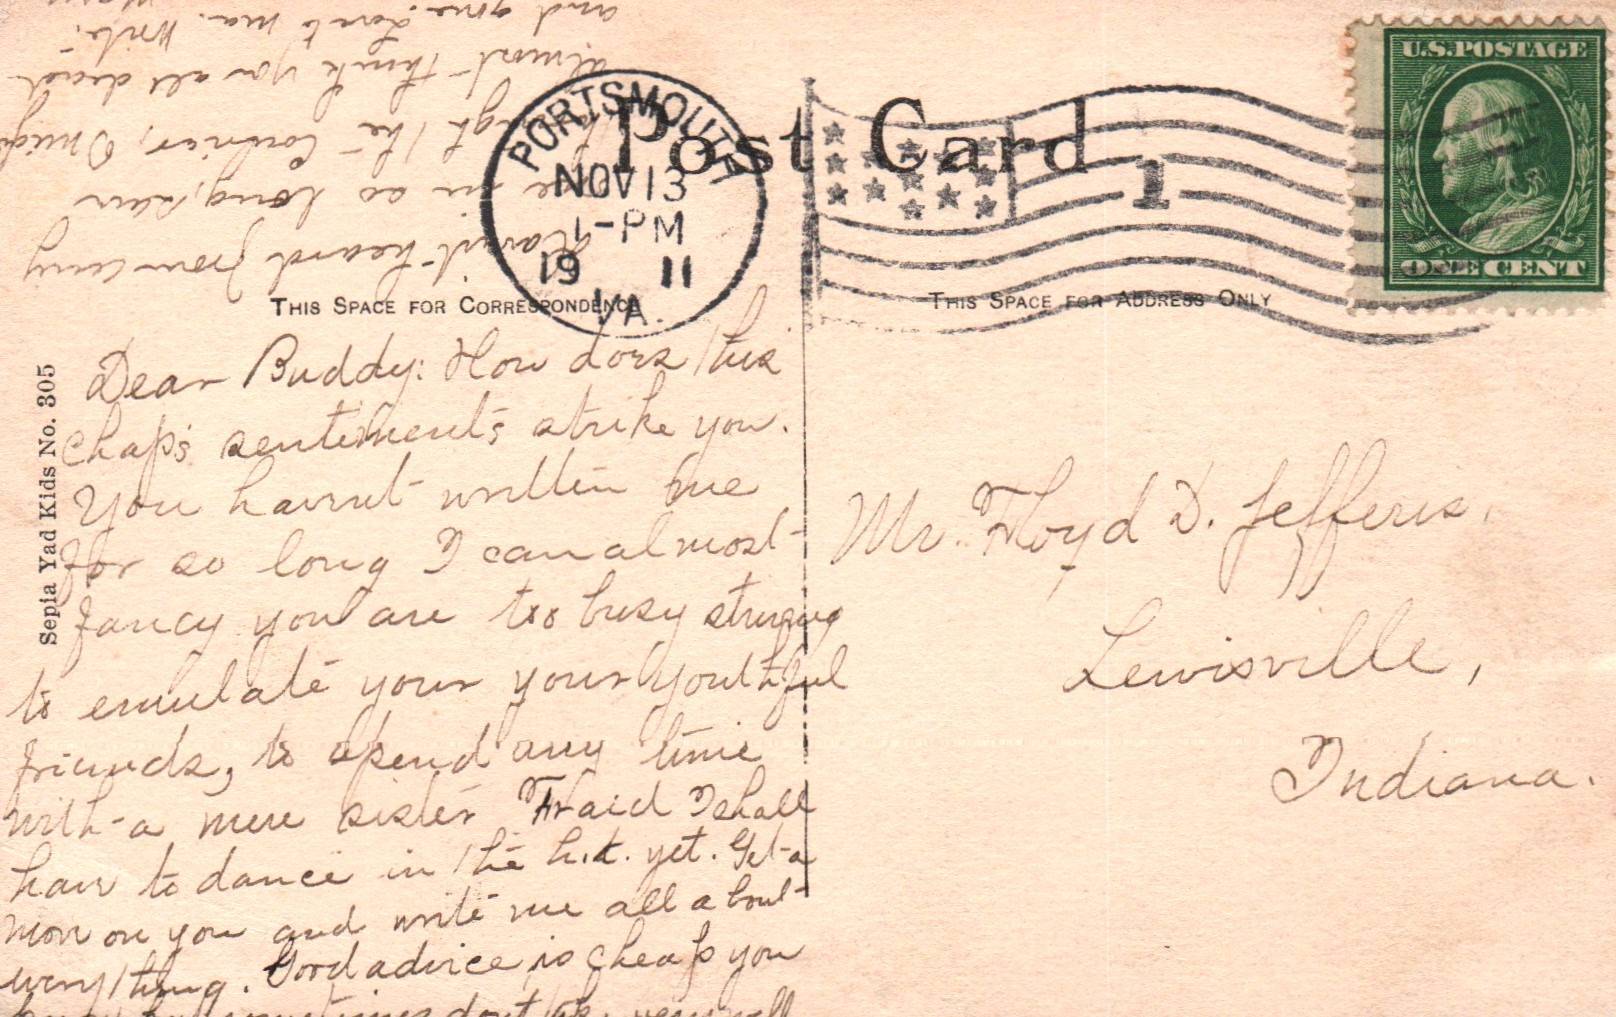 Post Card
U.S. POSTAGE
ONE CENT
PORTSMOUTH
NOV 13
1-PM
19 11
VA.
1
THIS SPACE FOR CORRESPONDENCE
THIS SPACE FOR ADDRESS ONLY
Sepia Yad Kids No. 305
Dear Buddy: How does this
chap's sentiments strike you.
You havent written me
for so long I can almost
fancy you are too busy
to emulate your your youthful
friends, to spend any time
with a mere sister 'Fraid I shall
have to dance in the h.k. yet. Get a
move on you and write me all about
everything. Good advice is cheap you
know but sometimes dont very well
Havent heard from
me in so long,
The Courier, I
almost think you all dead
and gone. Love to ma. Write.
Mr. Floyd D. Jefferis,
Lewisville,
Indiana.